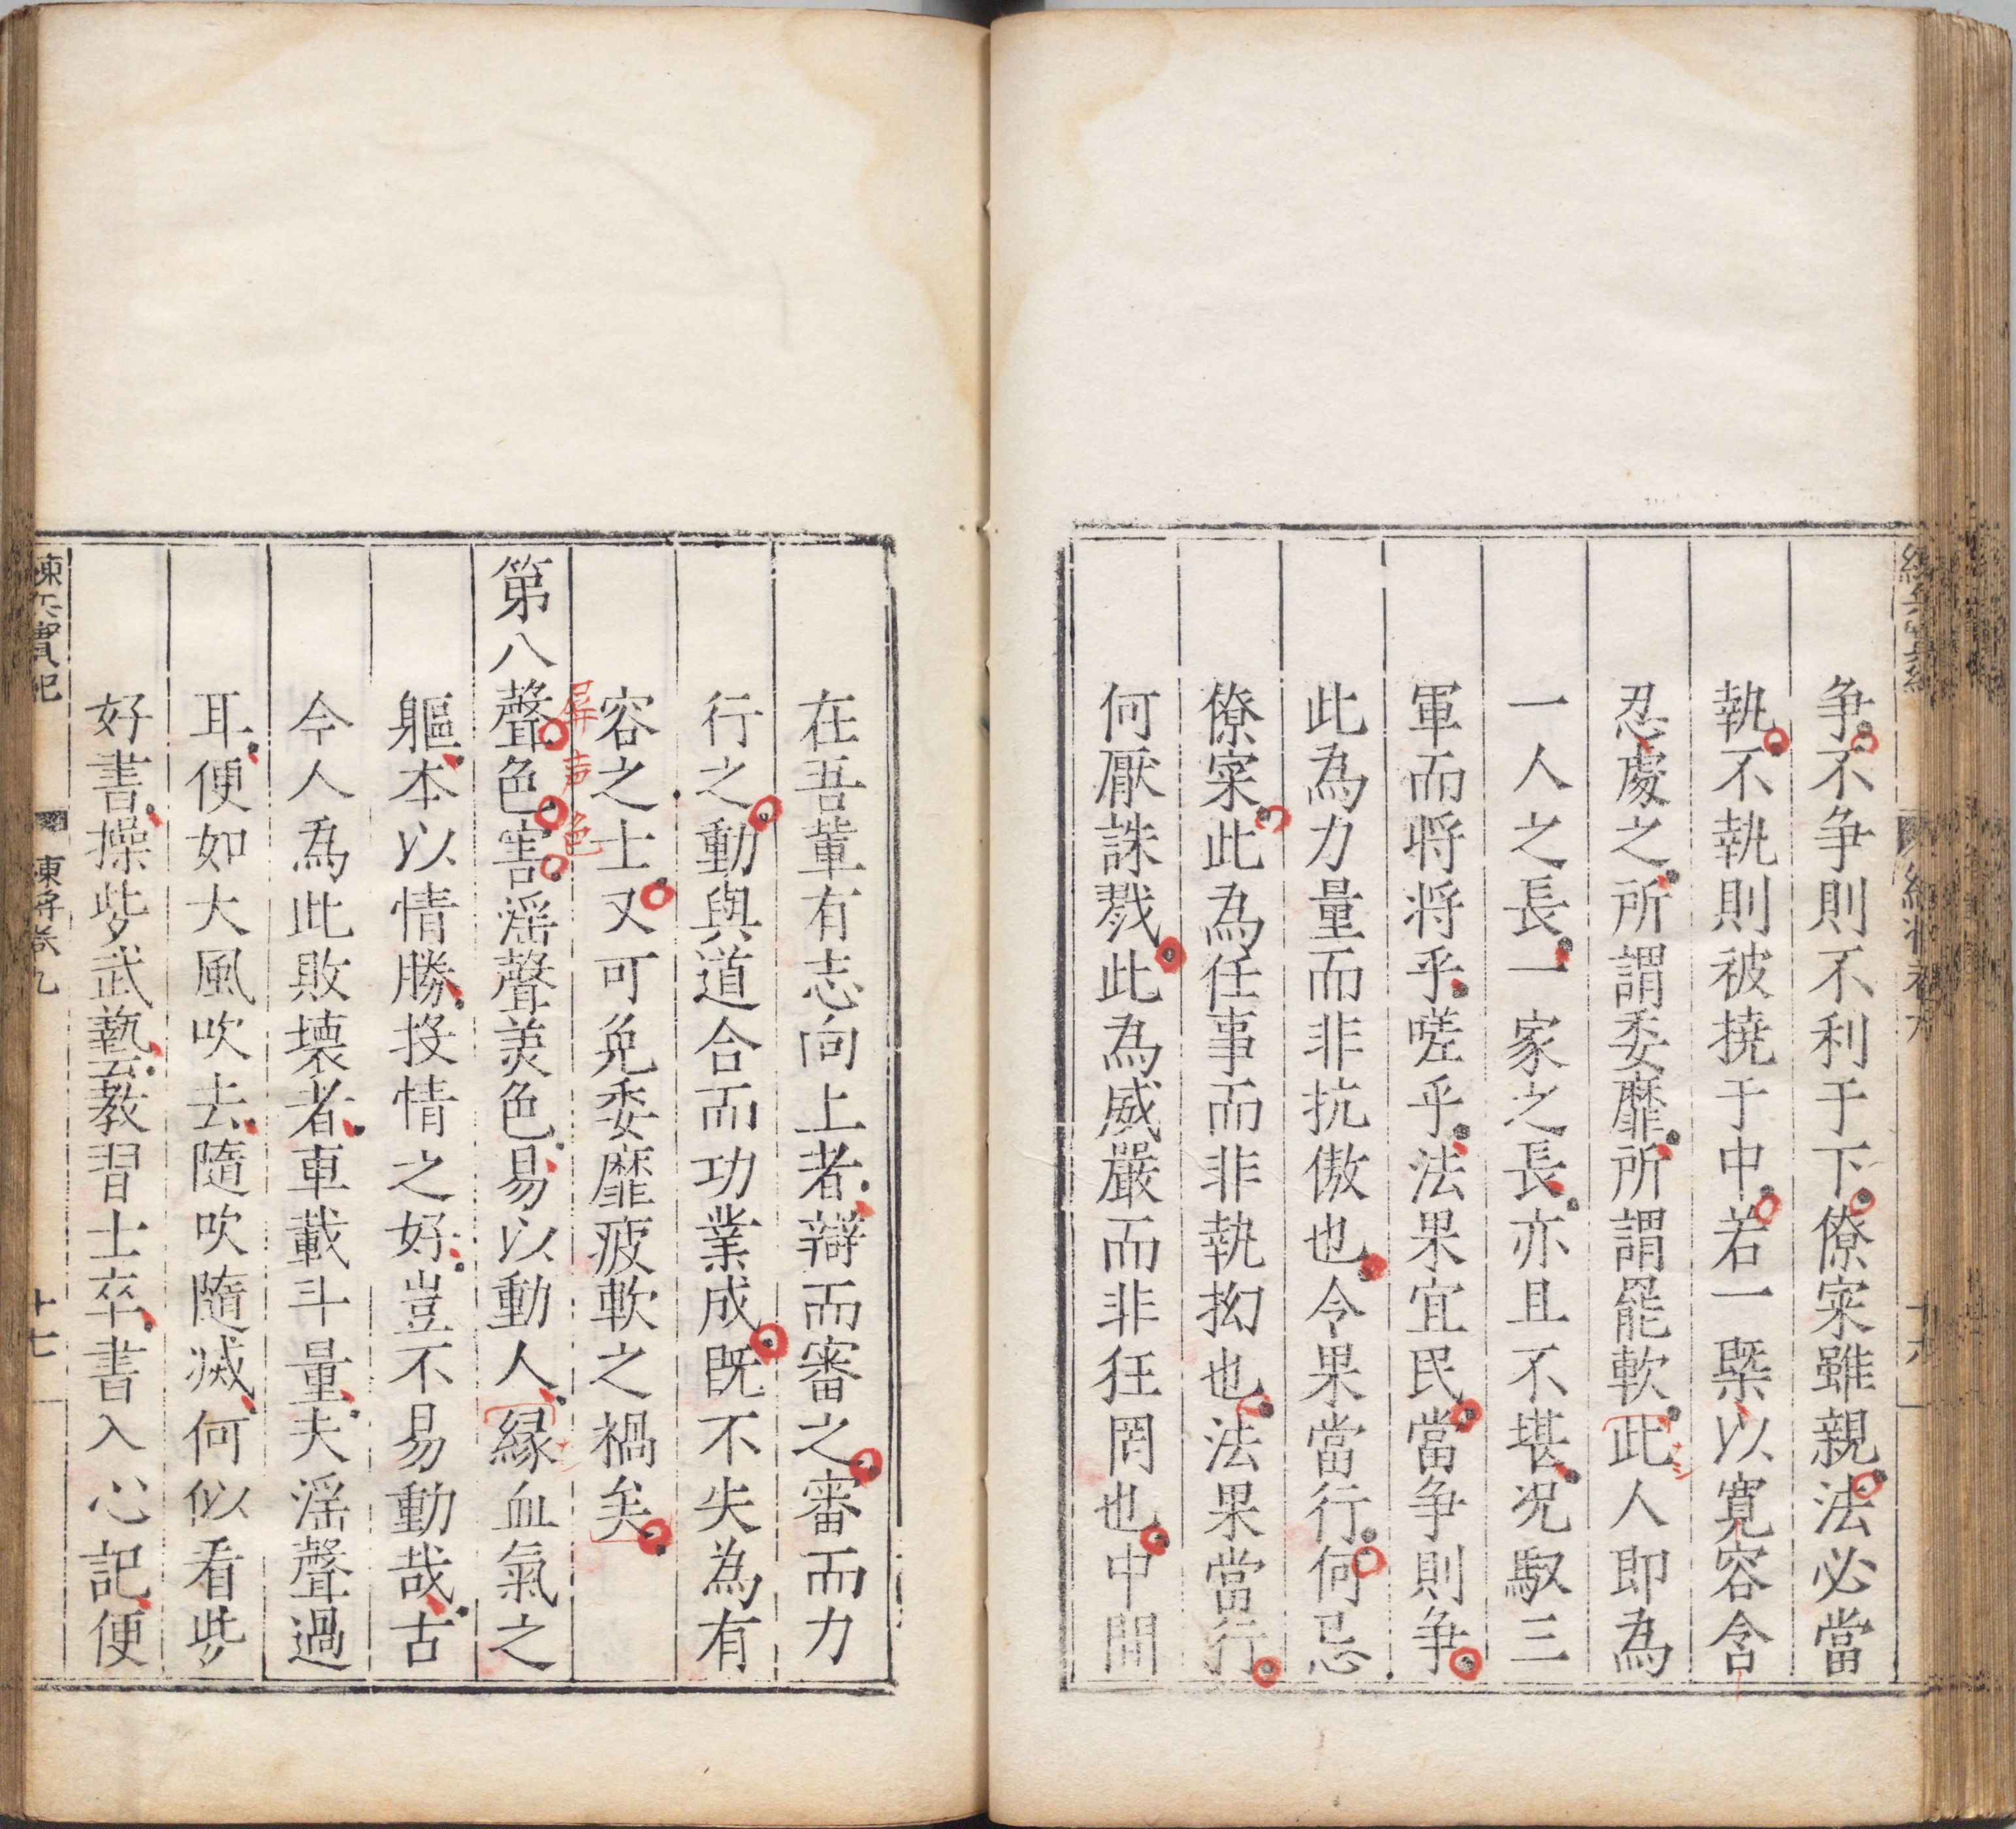 爭不爭則不利于下僚寀雖親法必當
執不執則被撓于中若一槩以寬容含
忍處之所謂委靡所謂罷軟此人即為
一人之長一家之長亦且不堪况馭三
軍而將將乎嗟乎法果宜民當爭則爭
此為力量而非抗傲也令果當行何忌
僚寀此為任事而非執拗也法果當行
何厭誅戮此為威嚴而非狂罔也中間
在吾輩有志向上者辯而審之審而力
行之動與道合而功業成既不失為有
容之士又可免委靡疲軟之禍矣
屏声色
第八聲色害滛聲美色易以動人緣血氣之
軀本以情勝投情之好豈不易動哉古
今人為此敗壞者車載斗量夫滛聲過
耳便如大風吹去隨吹隨滅何似看些
好書操些武藝教習士卒書入心記便
練兵實紀
練將卷九
十七